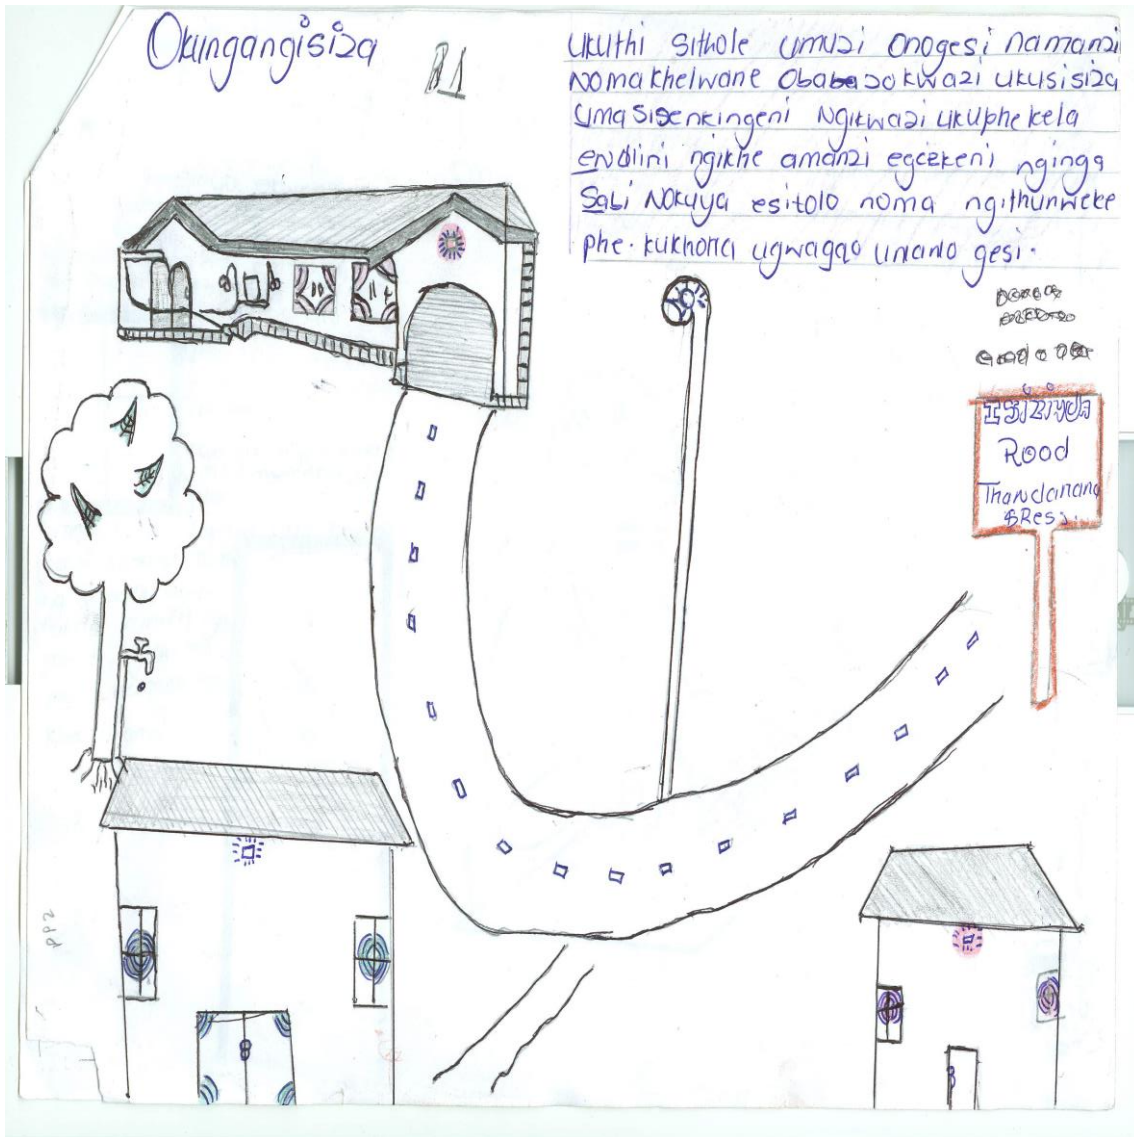 Okungangisiza
ukuthi sithole umuzi onogesi namanzi
nomakhelwane obabazokwazi ukusisiza
uma sisenkingeni Ngikwazi ukuphekela
endlini ngikhe amanzi egcekeni nginga
Sabi Nokuya esitolo noma ngithunweke
phe. kukhona ugwaqao unano gesi.
Isiziyda
Rood
Thandanang
BRes
PP2